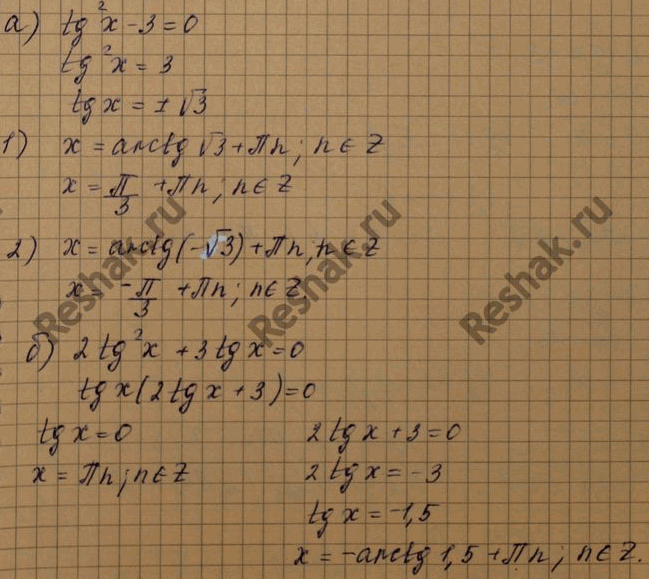 а) tg²x - 3 = 0
tg²x = 3
tg x = ± √3
1) x = arctg √3 + Πn; n ∈ Z
x = Π/3 + Πn; n ∈ Z
2) x = arctg(-√3) + Πn; n ∈ Z
x = -Π/3 + Πn; n ∈ Z.
б) 2 tg²x + 3 tg x = 0
tg x (2 tg x + 3) = 0
tg x = 0
x = Πn; n ∈ Z
2 tg x + 3 = 0
2 tg x = -3
tg x = -1,5
x = -arctg 1,5 + Πn; n ∈ Z.
Reshak.ru
Reshak.ru
Reshak.ru